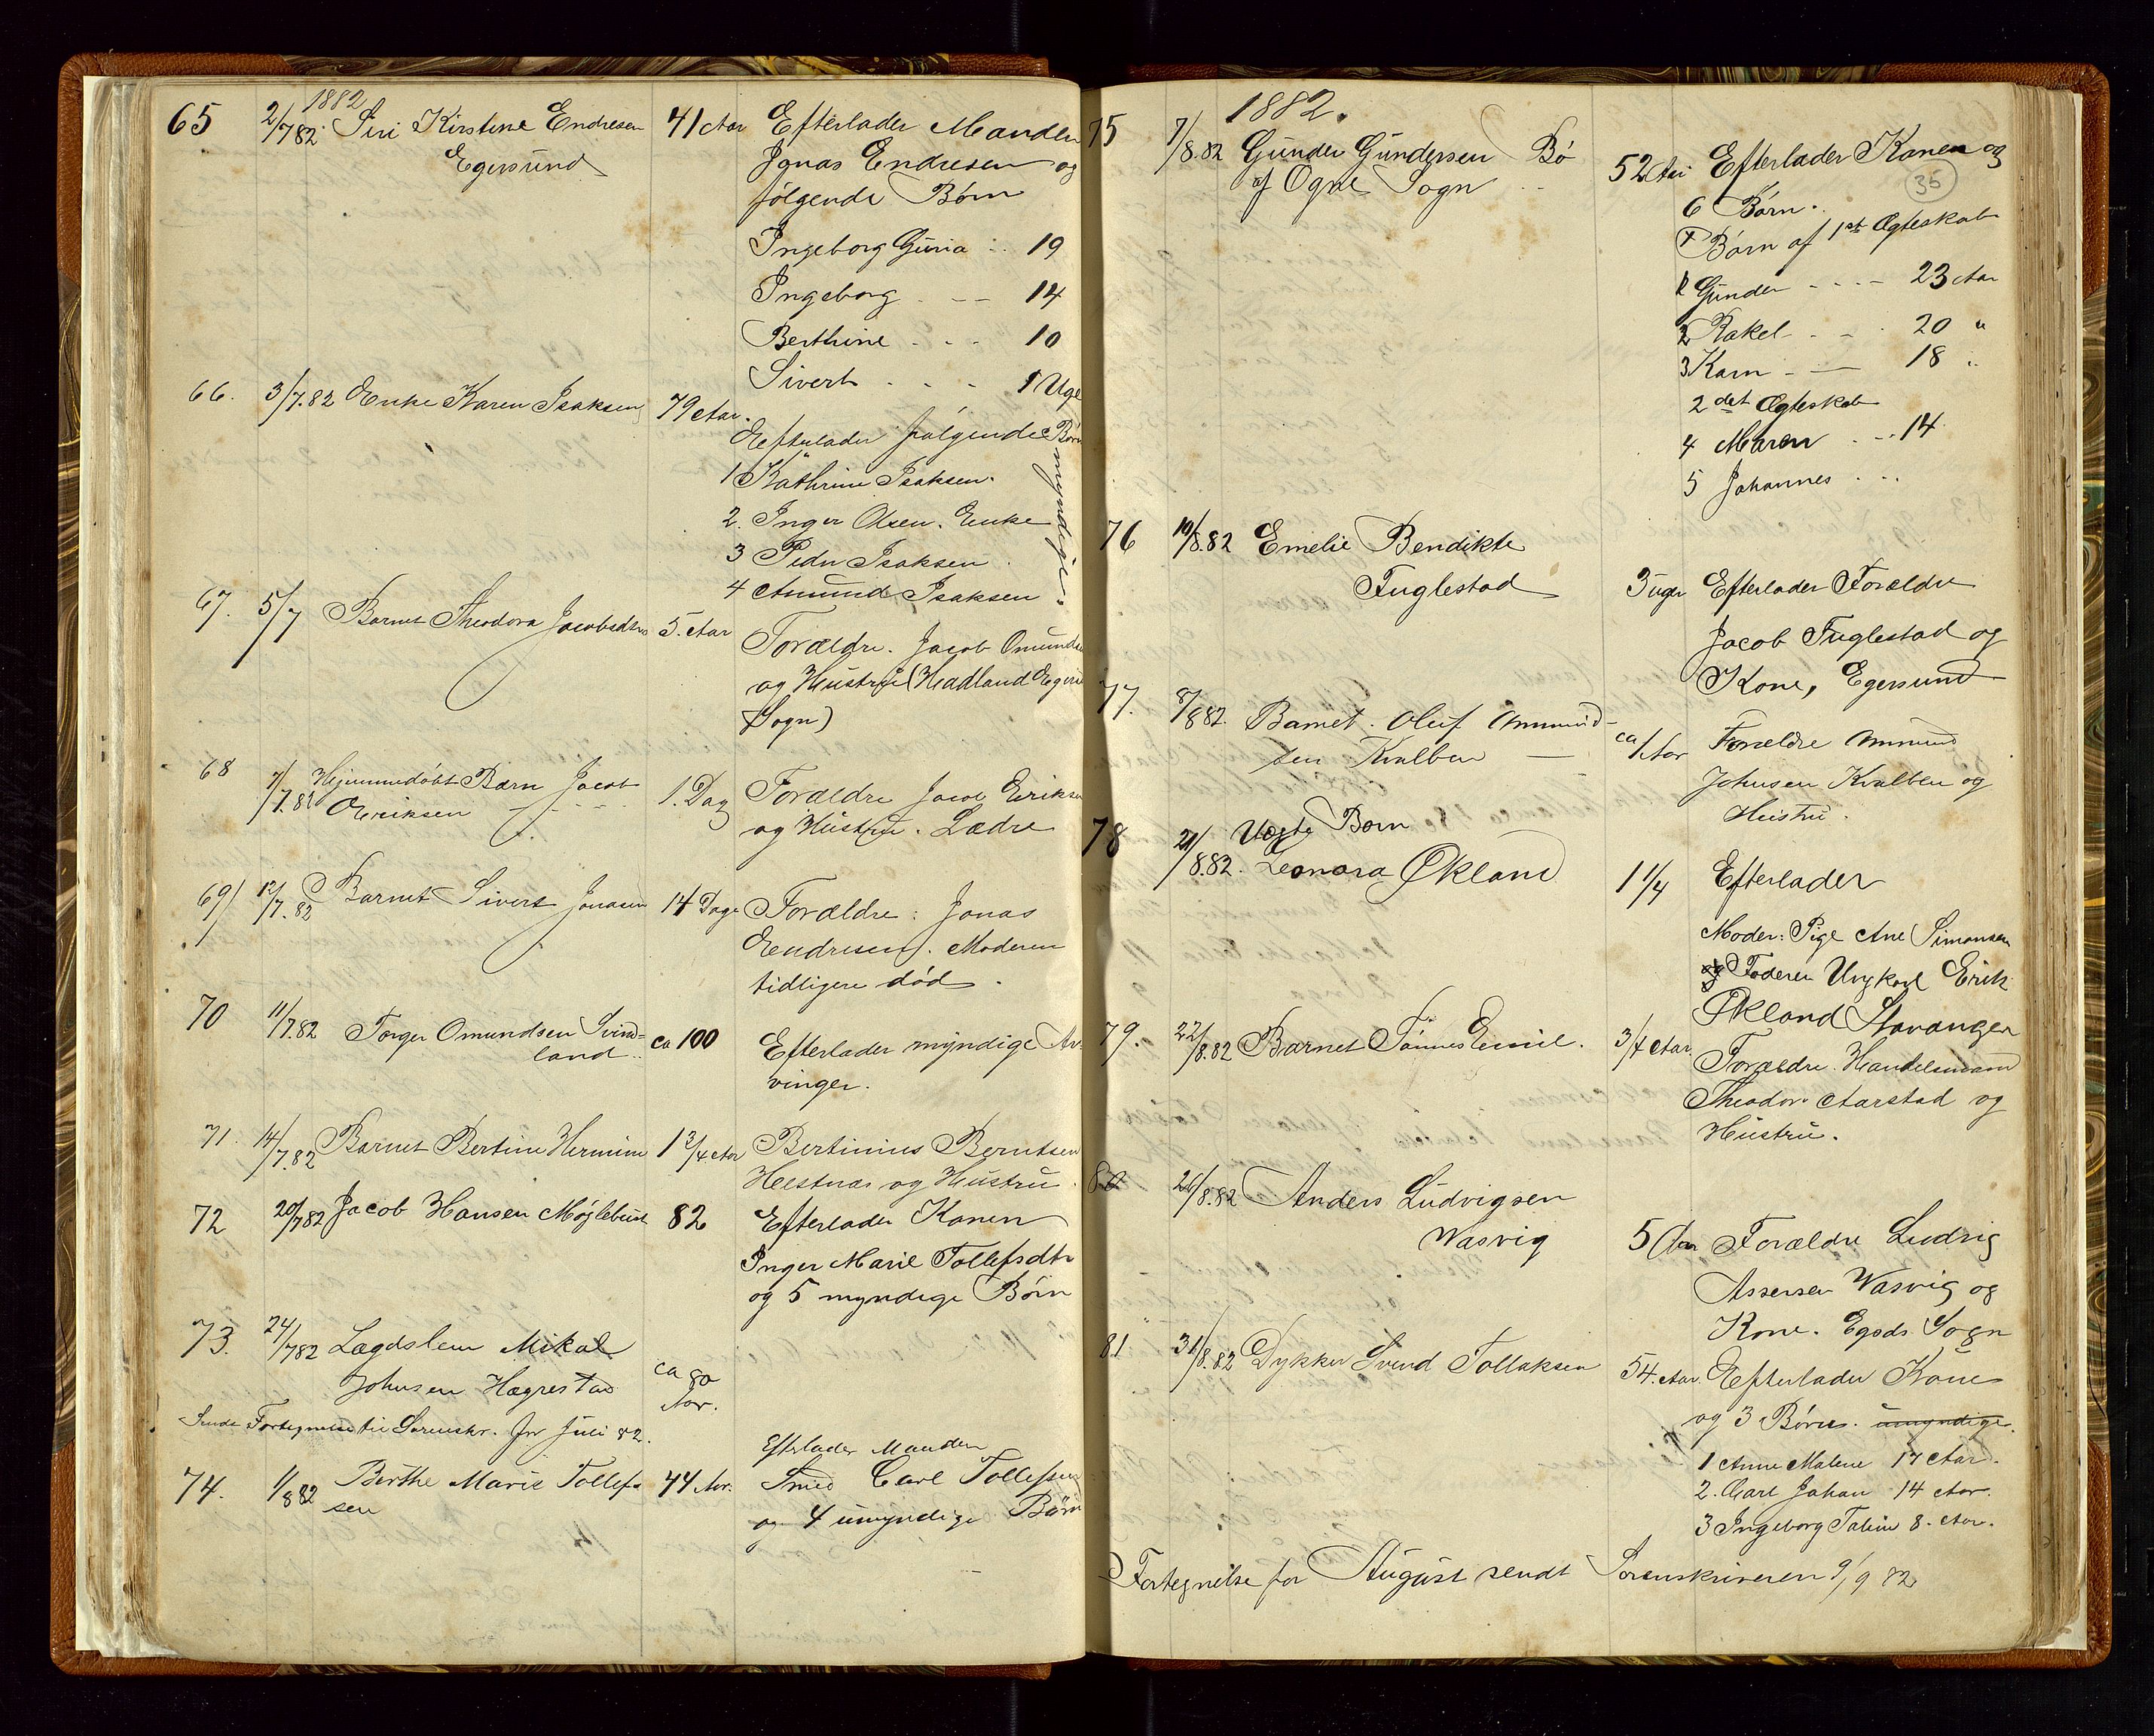 1882
65 2/7 82. Siri Kirstine Endresen 41 Aar Efterlader Manden
Egersund Jonas Endresen og
følgende Børn
Ingeborg Guria .. 19
Ingeborg - - 14
Berthine - - - 10
Sivert - - - 1 Uge
66. 3/7.82 Enke Karen Isaksen 79 Aar.
Efterlader følgende Børn
myndige.
1 Kathrine Isaksen.
2. Inger Olsen. Enke
3 Peder Isaksen
4 Amund Isaksen
67. 5/7 Barnet Theodora Jacobsdtr 5. Aar
Forældre. Jacob Omunds
og Hustru (Hadland Egers
Sogn)
68 7/7.82 Hjemmedøbt Barn Jacob 1. Dag Forældre Jacob Eriksen
Eriksen og Hustru. Lædre
69) 12/7.82 Barnet Sivert Jonasen 14 Dage Forældre: Jonas
Endresen. Moderen
tidligere død.
70 11/7.82 Torger Omundsen Svind- ca 100 Efterlader myndige Ar-
land.. vinger.
71. 14/7.82 Barnet Bertine Hermine 1 3/4 Aar Bertinius Berntsen
Hestnes og Hustru.
72 20/7 82 Jacob Hansen Møglebust 82 Efterlader Konen
Inger Marie Tollefsdtr
og 5 myndige Børn
73. 24/7 82 Lægdslem Mikal ca 80
Johnsen Hægrestad Aar.
Sendt Fortegnelse til Sorenskr. for Juli 82.
Efterlader Manden
74. 1/8 82 Berthe Marie Tollef- 44 Aar. Smed Carl Tollefsen
sen og 4 umyndige Børn
1882.
75 7/8.82 Gunder Gundersen Bø 52 Aar Efterlader Konen og
af Ogne Sogn 35
6 Børn.
Børn af 1st Ægteskab
1 Gunder - - - - 23 Aar
2 Rakel - - - 20 "
3 Karn - - 18 "
2det Ægteskab
4 Maren - - 14
5 Johannes - - -
76 10/8.82 Emelie Bendikte
Fuglestad 3 uger Efterlader Forældre
Jacob Fuglestad og
Kone, Egersund
77. 8/8 82. Barnet. Oluf Ommund- ca 1 Aar Forældre Ommund
sen Kvalben Johnsen Kvalben og
Hustru.
78 21/8.82. Uægte Barn
Leonora Økland 1 1/4 Efterlader
Moder: Pige Ane Simonsen
og Faderen Ungkarl Erik
Økland Stavanger
79. 22/8.82 Barnet Tønnes Emil. 3/4 Aar.
Forældre. Handelsmand
Theodor Aarstad og
Hustru.
80 26/8.82 Anders Ludvigsen
Wasvig 5 Aar Forældre Ludvig
Assersen Wasvig og
Kone. Egsds Sogn
81. 31/8.82 Dykker Svend Tollaksen 54. Aar. Efterlader Kone
og 3 Børn. umyndige.
1 Anne Malene 17 Aar.
2. Carl Johan 14 Aar.
3 Ingeborg Taline 8. Aar.
Fortegnelse for August sendt Sorenskriveren 9/9 82